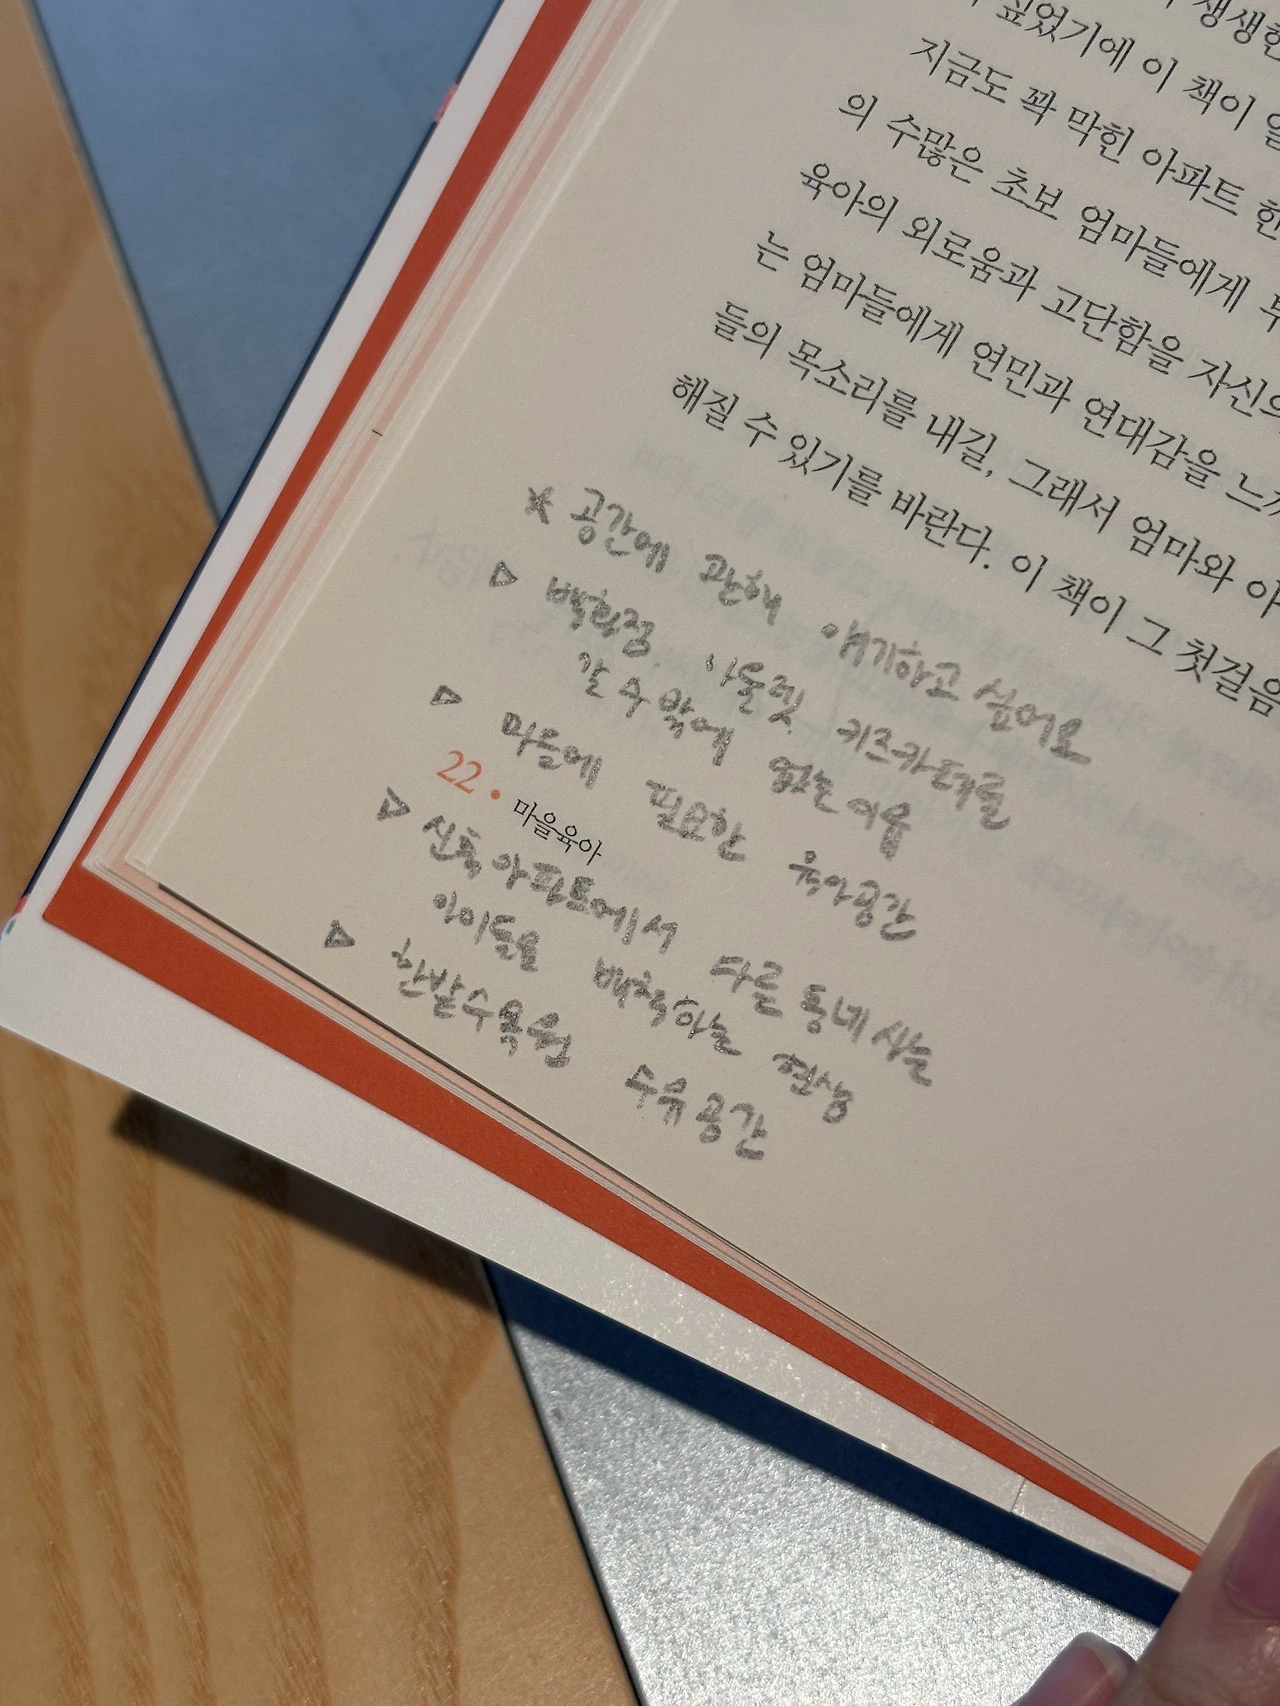 생생한
싶었기에 이 책이
지금도 꽉 막힌 아파트 한
의 수많은 초보 엄마들에게
육아의 외로움과 고단함을 자신의
는 엄마들에게 연민과 연대감을 느끼
들의 목소리를 내길, 그래서 엄마와 아
해질 수 있기를 바란다. 이 책이 그 첫걸음
* 공간에 관해 얘기하고 싶어요
▷ 백화점, 아울렛, 키즈카페를
갈 수 밖에 없는 이유
▷ 마을에 필요한 육아공간
22 • 마을육아
▷ 신축아파트에서 다른 동네 사는
아이들을 배척하는 현상
▷ 한밭수목원 수유공간